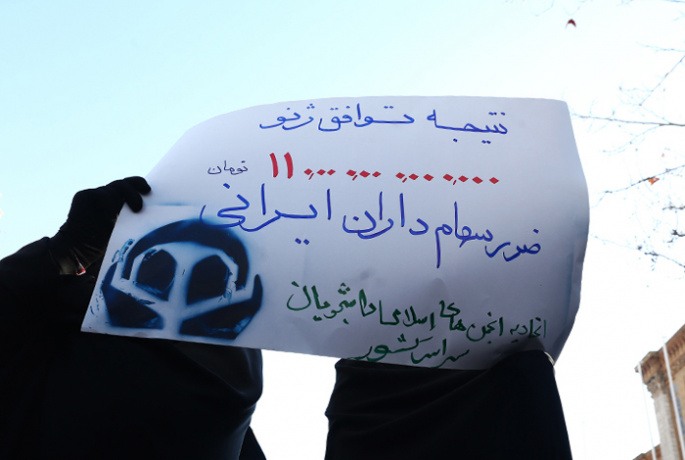 نتیجه توافق ژنو
۱۱,۰۰۰,۰۰۰,۰۰۰,۰۰۰ تومان
ضرر سهام داران ایرانی
اتحادیه انجمن های اسلامی دانشجویان
سراسر کشور